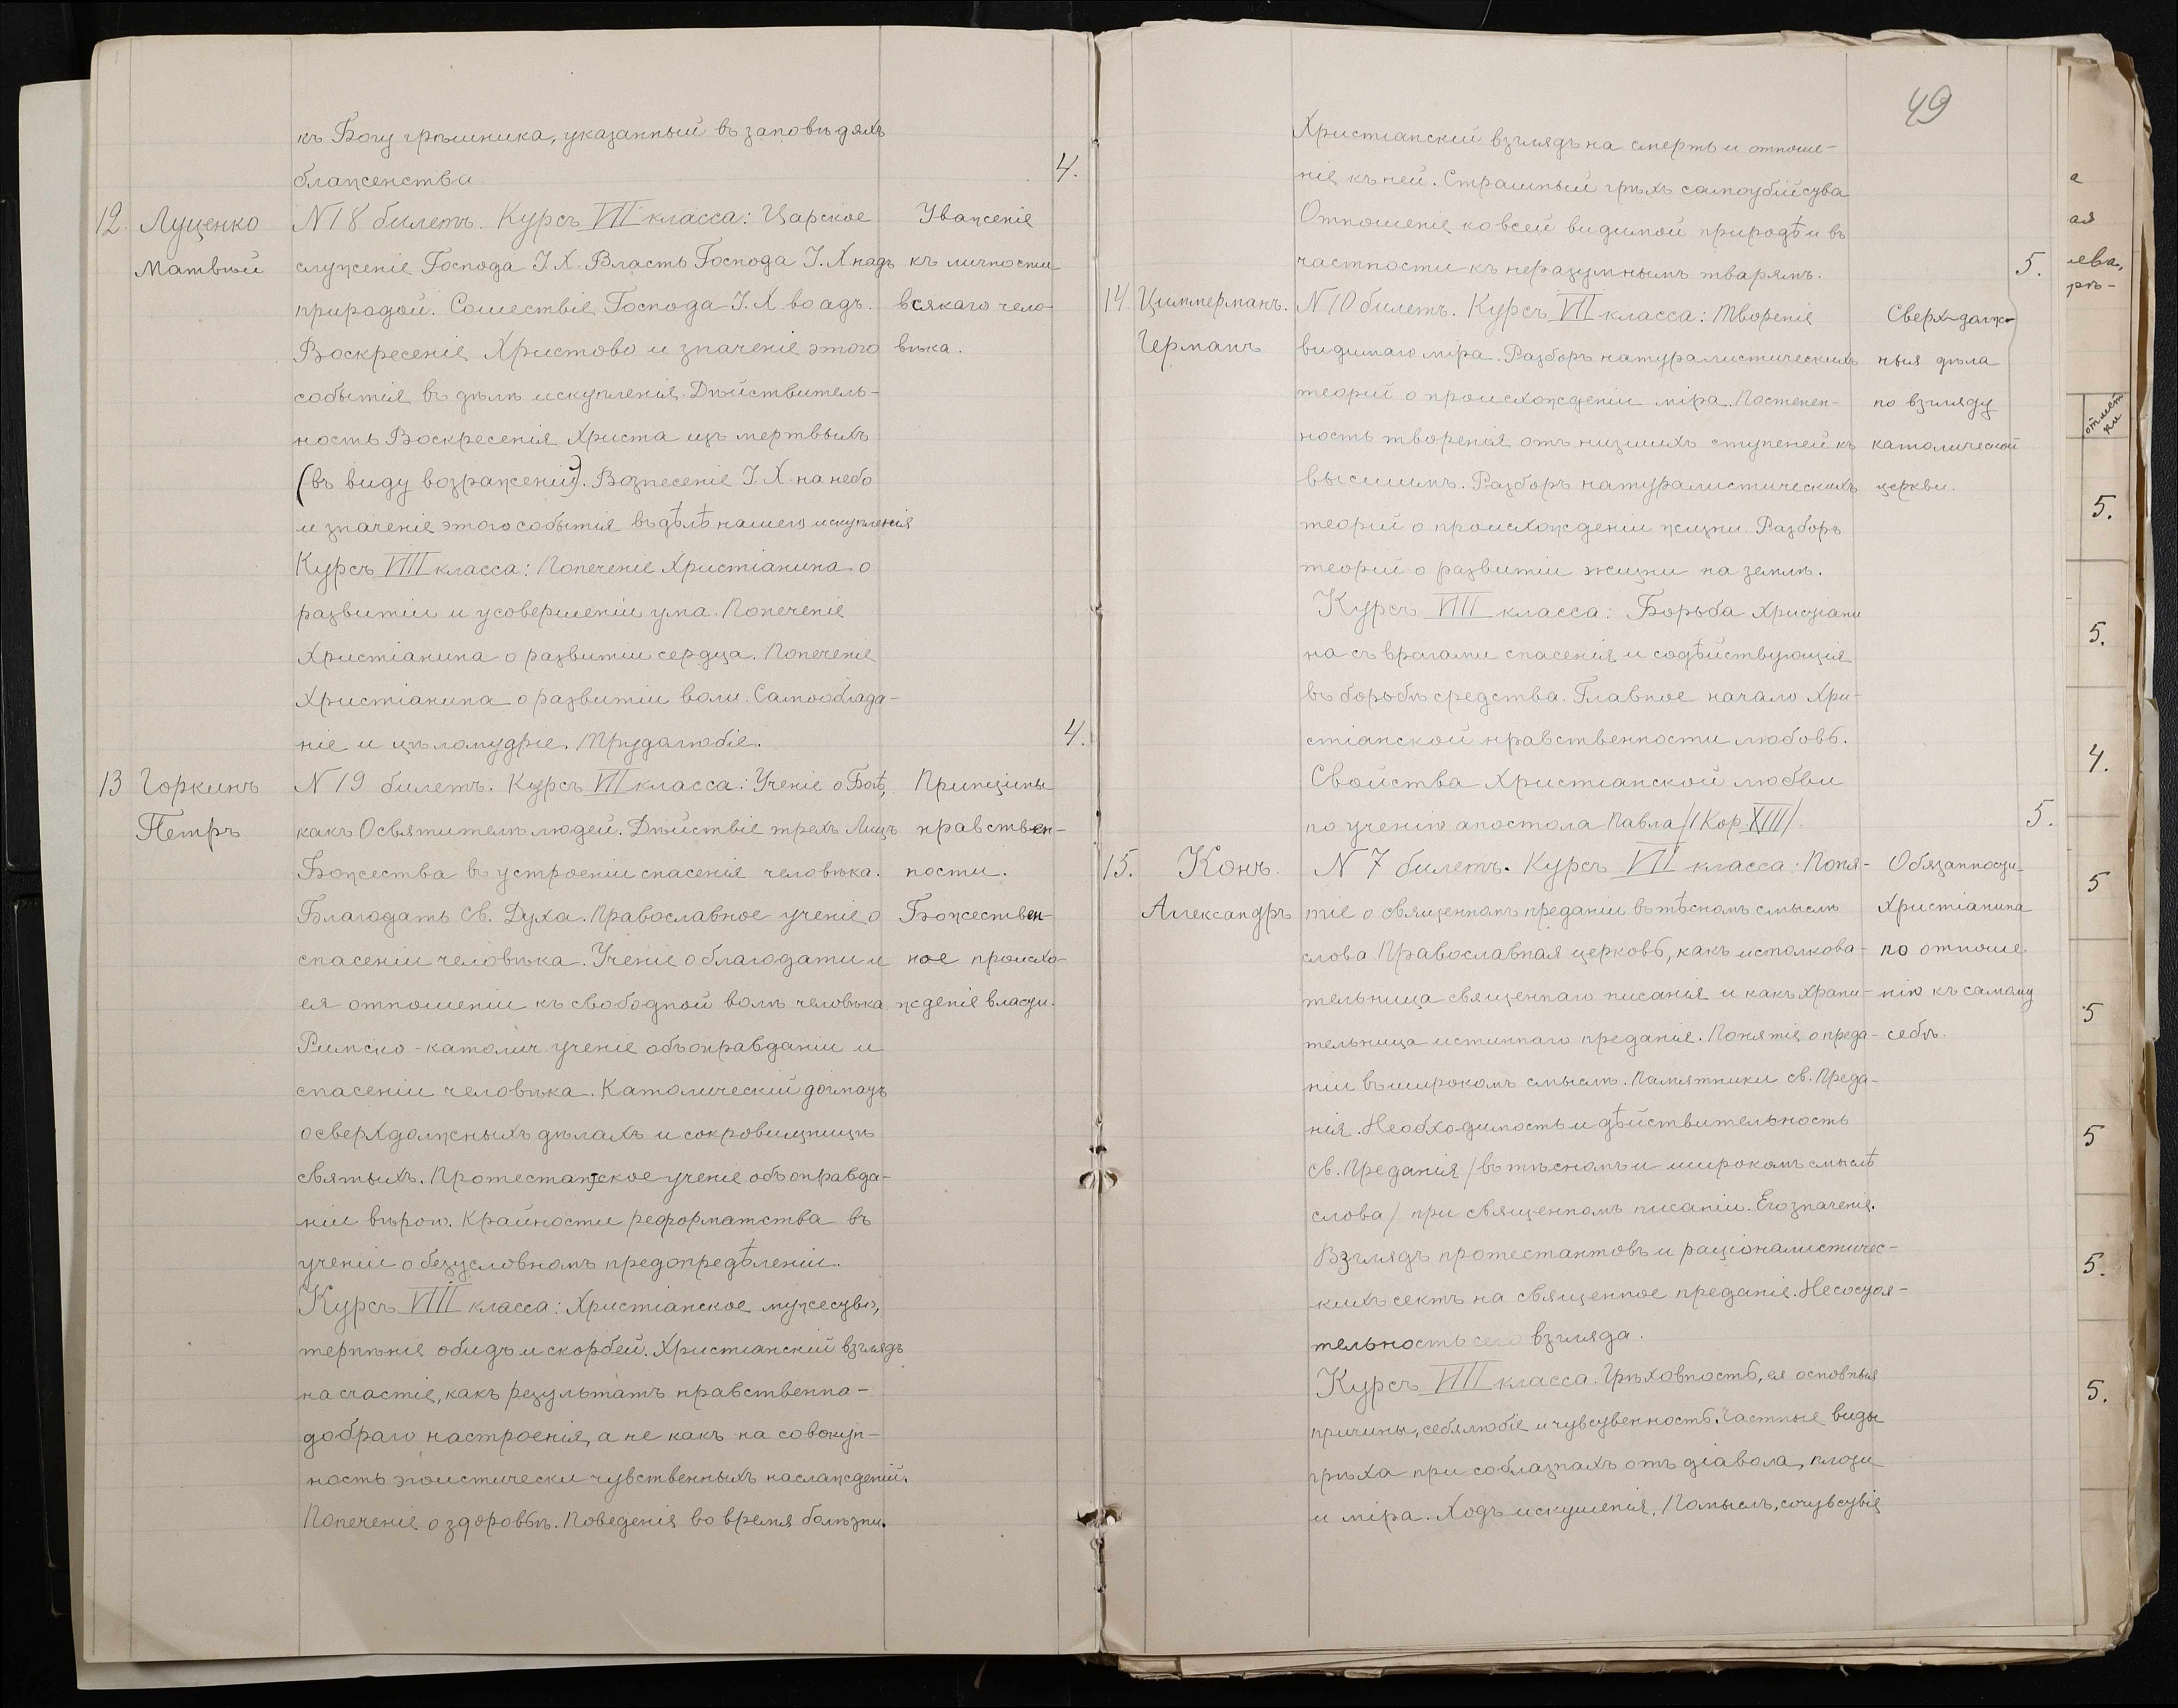 къ Богу грѣшника, указанный въ заповѣдяхъ
блаженства. 4.
12. Луценко N 18 билетъ. Курсъ VII класса: Царское Уваженіе
Матвѣй служеніе Господа I. X. Власть Господа I. X надъ къ личности
природой. Сошествіе Господа I. X во адъ. всякаго чело-
Воскресеніе Христово и значеніе этого вѣка.
событія въ дѣлѣ искупленія. Дѣйствитель-
ность Воскресенія Христа изъ мертвыхъ
(въ виду возраженій). Вознесеніе I. X на небо
и значеніе этого событія въ дѣлѣ нашего искупленія
Курсъ VIII класса: Попеченіе Христіанина о
развитіи и усовершеніи ума. Попеченіе
Христіанина о развитіи сердца. Попеченіе
Христіанина о развитіи воли. Самооблада-
ніе и цѣломудріе. Трудолюбіе. 4.
13 Горкинъ N 19 билетъ. Курсъ VII класса: Ученіе о Богѣ, Принципы
Петръ какъ Освятителѣ людей. Дѣйствіе трехъ Лицъ нравствен-
Божества въ устроеніи спасенія человѣка. ности.
Благодать Св. Духа. Православное ученіе о Божествен-
спасеніи человѣка. Ученіе о благодати и ное происхо-
ея отношеніи къ свободной волѣ человѣка жденіе власти.
Римско-католич. ученіе объ оправданіи и
спасеніи человѣка. Католическій догматъ
о сверхдолжныхъ дѣлахъ и сокровищницѣ
святыхъ. Протестантское ученіе объ оправда-
ніи вѣрою. Крайности реформатства въ
ученіи о безусловномъ предопредѣленіи.
Курсъ VIII класса: Христіанское мужество,
терпѣніе обидъ и скорбей. Христіанскій взглядъ
на счастіе, какъ результатъ нравственно-
добраго настроенія, а не какъ на совокуп-
ность эгоистически чувственныхъ наслажденій.
Попеченіе о здоровьѣ. Поведенія во время болѣзни.
49
Христіанскій взглядъ на смерть и отноше-
ніе къ ней. Страшный грѣхъ самоубійства
Отношеніе ко всей видимой природѣ и въ
частности къ неразумнымъ тварямъ. 5.
14. Циммерманъ. N 10 билетъ. Курсъ VII класса: Твореніе Сверх-долж-
Германъ видимаго міра. Разборъ натуралистическихъ ныя дѣла
теорій о происхожденіи міра. Постепен- по взгляду
ность творенія отъ низшихъ ступеней къ католической
высшимъ. Разборъ натуралистическихъ церкви.
теорій о происхожденіи жизни. Разборъ
теорій о развитіи жизни на землѣ.
Курсъ VIII класса: Борьба Христіани
на съ врагами спасенія и содѣйствующія
въ борьбѣ средства. Главное начало Хри-
стіанской нравственности любовь.
Свойства Христіанской любви
по ученію апостола Павла /I Кор. XIII/. 5.
15. Конъ. N 7 билетъ. Курсъ VII класса: Поня- Обязанности
Александръ тіе о священномъ преданіи въ тѣсномъ смыслѣ Христіанина
слова. Православная церковь, какъ истолкова- по отноше-
тельница священнаго писанія и какъ храни- нію къ самому
тельница истиннаго преданія. Понятіе о преда- себѣ.
ніи въ широкомъ смыслѣ. Памятники св. Преда-
нія. Необходимость и дѣйствительность
св. Преданія /въ тѣсномъ и широкомъ смыслѣ
слова/ при священномъ писаніи. Его значеніе.
Взглядъ протестантовъ и раціоналистичес-
кихъ сектъ на священное преданіе. Несостоя-
тельность сего взгляда.
Курсъ VIII класса. Грѣховность, ея основныя
причины, себялюбіе и чувственность. Частные виды
грѣха при соблазнахъ отъ діавола, плоти
и міра. Ходъ искушенія. Помыслъ, сочувствіе
а
ая
лева,
рѣ-
отмет
ки
5.
5.
4.
5
5
5
5.
5.